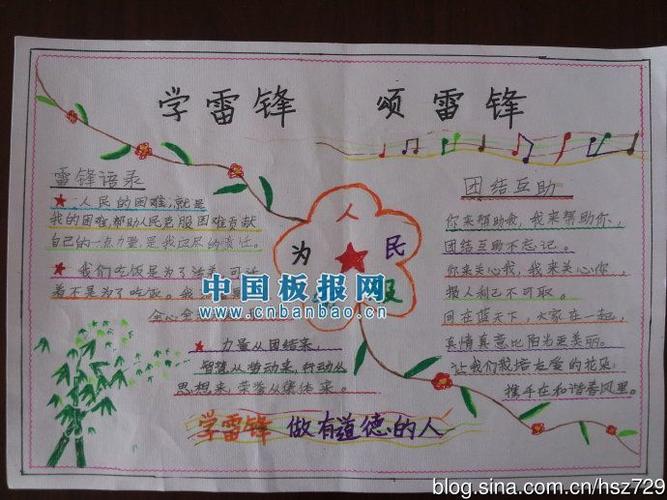 学雷锋 颂雷锋
雷锋语录
★ 人民的困难,就是
我的困难,帮助人民克服困难贡献
自己的一点力量,是我应尽的责任。
★ 我们吃饭是为了活着,可活
着不是为了吃饭。我
全心全
★ 力量从团结来,
智慧从劳动来,行动从
思想来,荣誉从集体来。
为 人 民 服
中国板报网
www.cnbanbao.cn
团结互助
你来帮助我,我来帮助你,
团结互助不忘记。
你来关心我,我来关心你,
损人利己不可取。
同在蓝天下,大家在一起,
真情真意比阳光更美丽。
让我们栽培友爱的花朵,
携手在和谐春风里。
学雷锋 做有道德的人
blog.sina.com.cn/hsz729